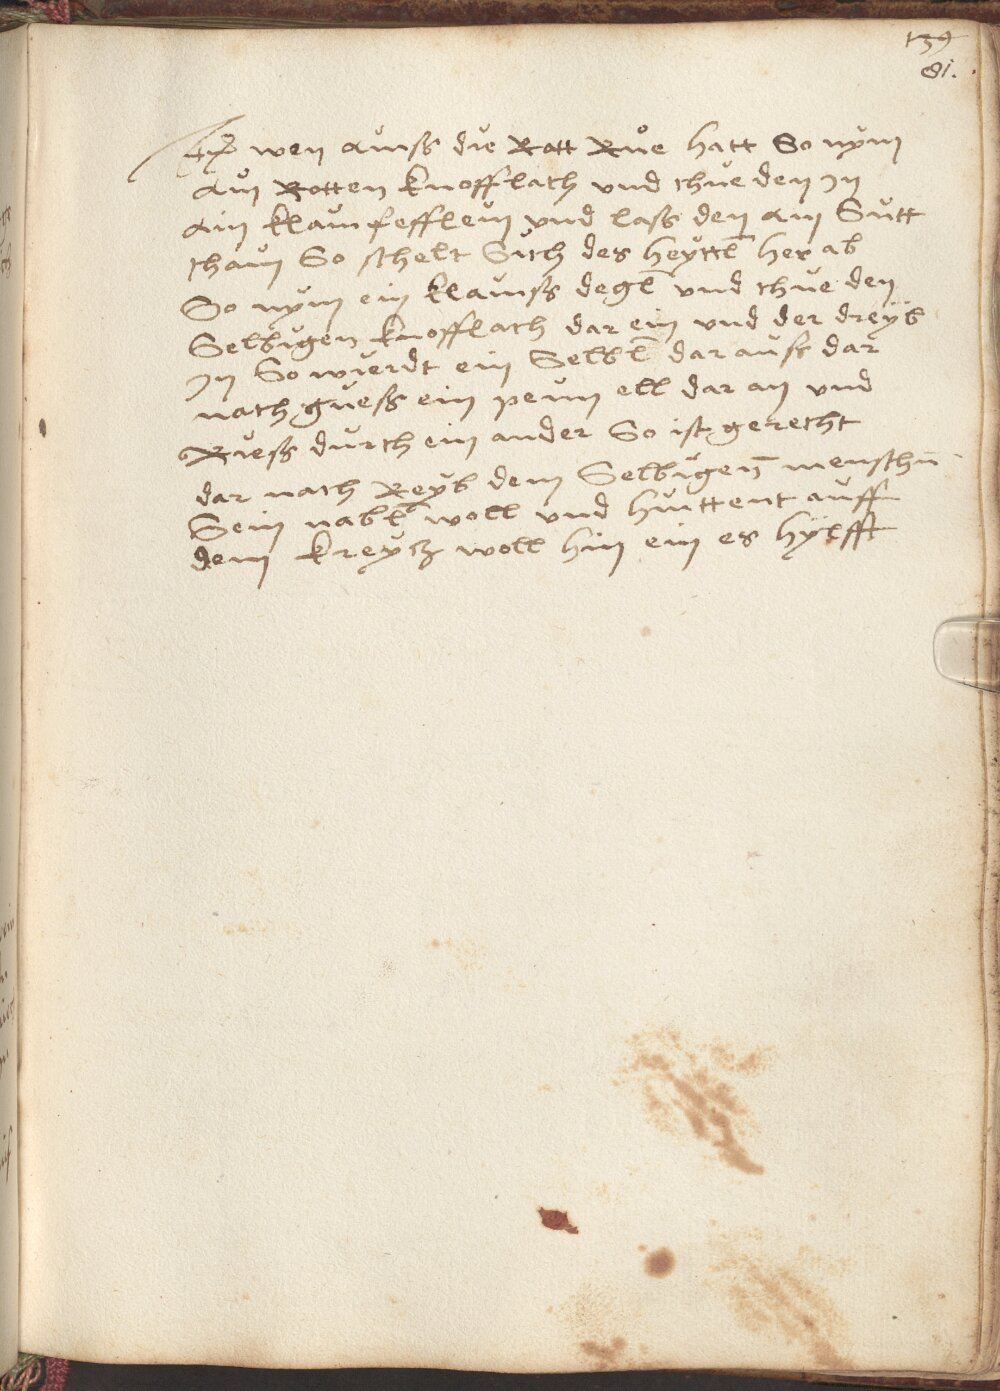 139
81.
Jtem wen ainss die Rott Rue hatt So nÿm
ain Rotten knofflach vnd thue den Jn
ain klain fefflein vnd lass den ain Sutt
thain So schelt Sich des heyttl her ab
So nÿm ein klainss degl vnd thue den
Selbigen knofflach dar ein vnd der dreÿb
Jn So wierdt ein Selbl dar auss dar
nach guess ein pem ell dar an vnd
Riess durch ein ander So ist gerecht
dar nach Reyb dem Selbigen menschn
Sein nabl woll vnd hinttent auff
dem kreycz woll hin ein es hÿlfft